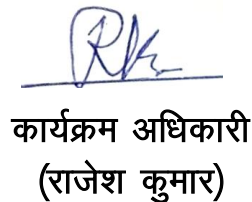 कार्यक्रम अधिकारी
(राजेश कुमार)